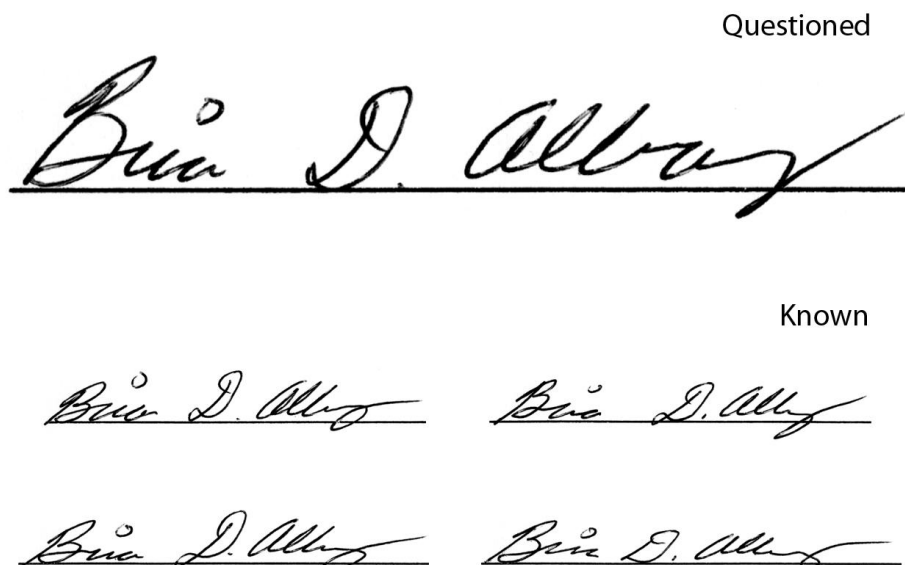 Questioned
Bria D. Albay
Known
Bria D. Albay Bria D. Albay
Bria D. Albay Bria D. Albay